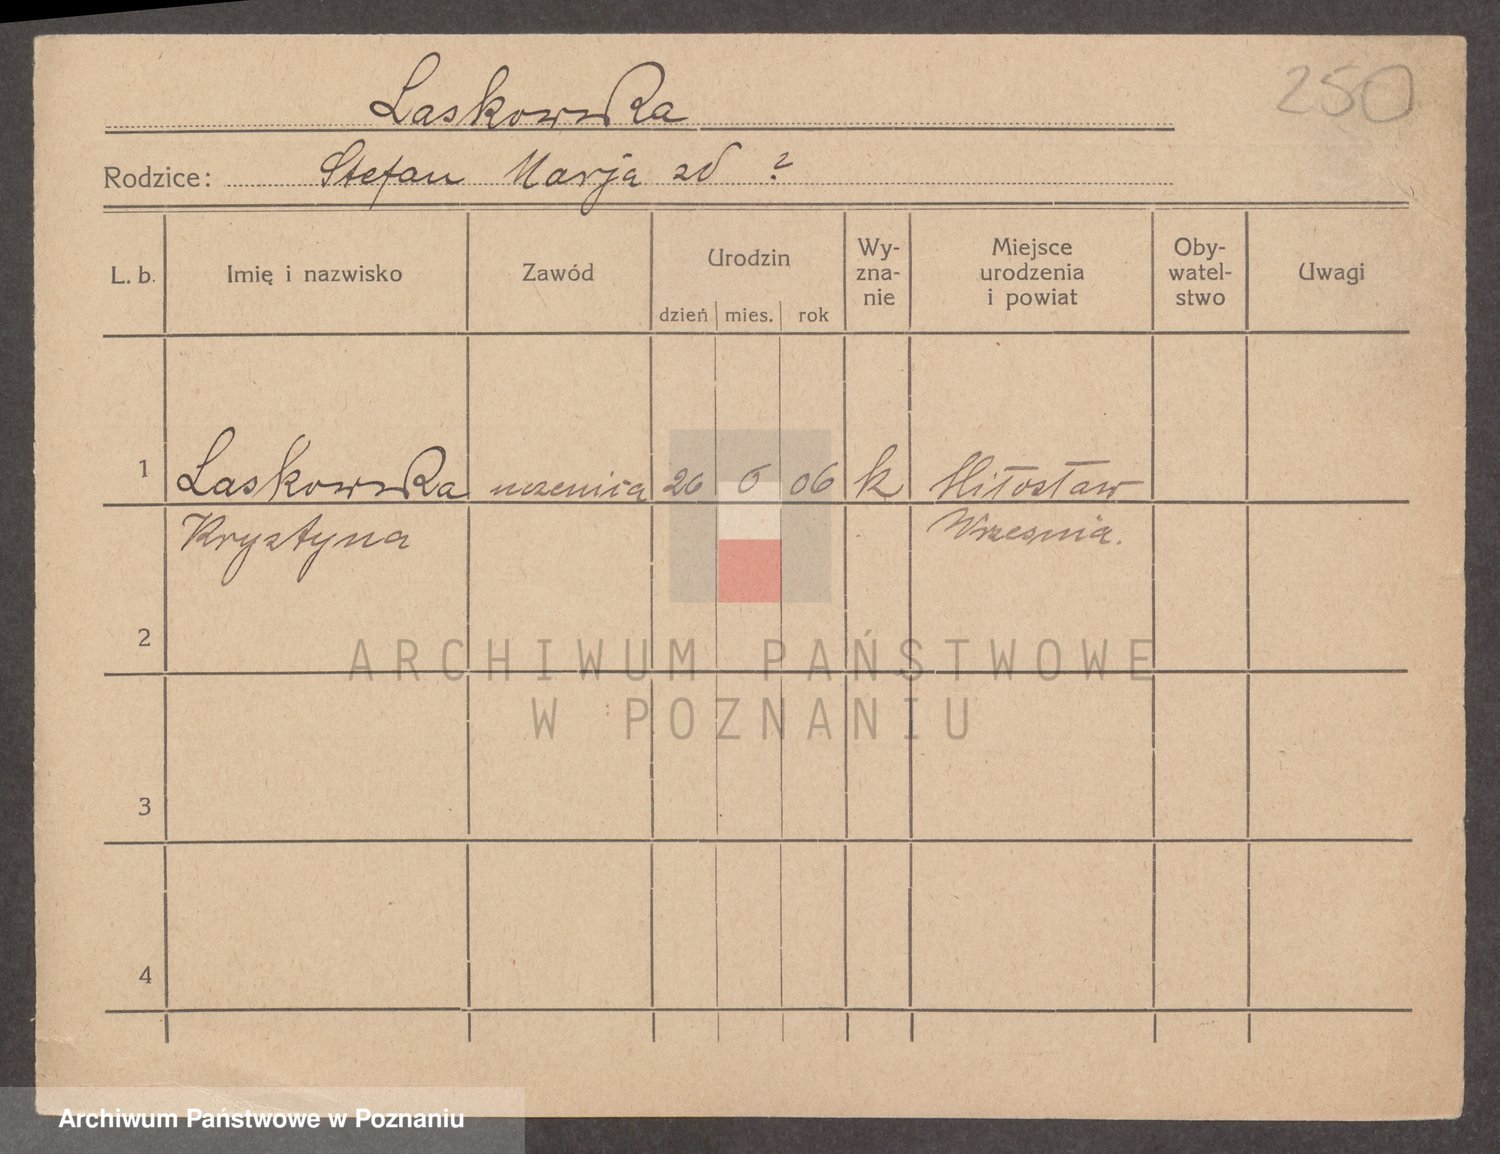 250
Laskowska
Rodzice: Stefan Marja zd ?
L. b. Imię i nazwisko Zawód Urodzin dzień mies. rok Wy-zna-nie Miejsce urodzenia i powiat Oby-watel-stwo Uwagi
1 Laskowska uczenica 26 6 06 k Miłosław
Krystyna Wrzesnia.
2
3
4
ARCHIWUM PAŃSTWOWE
W POZNANIU
Archiwum Państwowe w Poznaniu